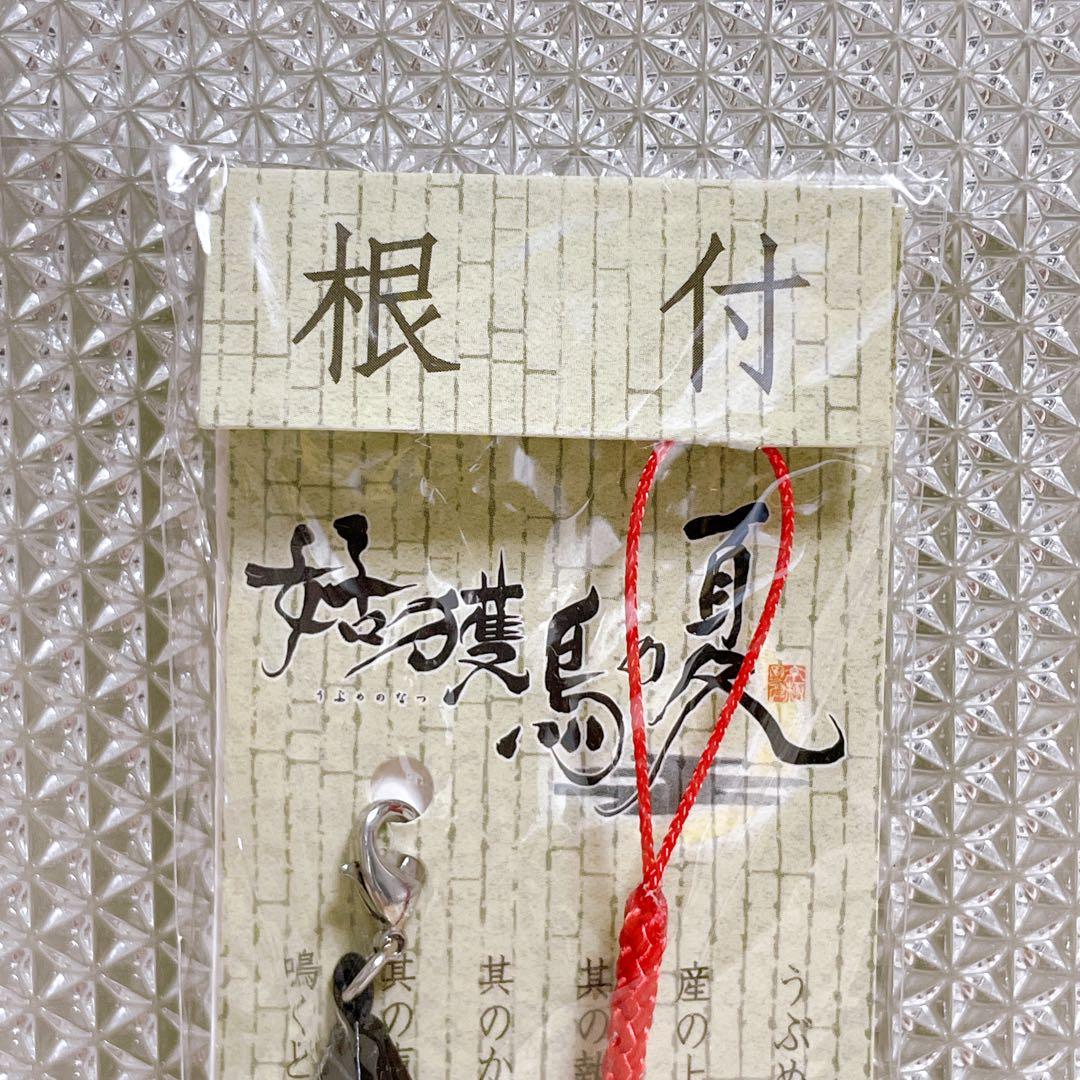 根付
姑獲鳥の夏
うぶめのなつ
うぶめ
産の上
其の執
其のか
其の
鳴くと